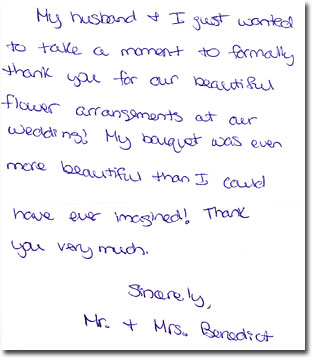 My husband + I just wanted
to take a moment to formally
thank you for our beautiful
flower arrangements at our
wedding! My bouquet was even
more beautiful than I could
have ever imagined! Thank
you very much.
Sincerely,
Mr. + Mrs. Benedict